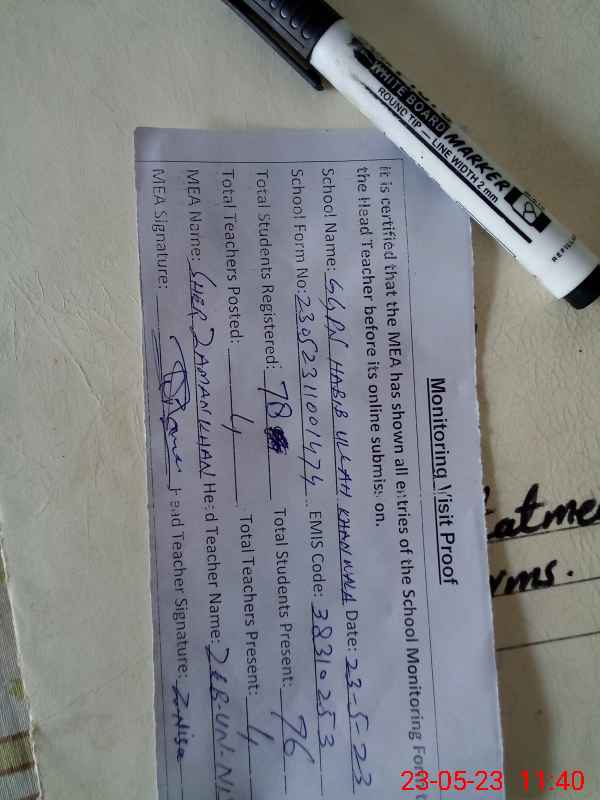 WHITE BOARD MARKER
ROUND TIP — LINE WIDTH 2 mm
Monitoring Visit Proof
it is certified that the MEA has shown all entries of the School Monitoring Form t
the Head Teacher before its online submission.
School Name: GGPS HABIB ULLAH KHAN WALA Date: 23-5-23
School Form No: 23052311001474 EMIS Code: 38310253
Total Students Registered: 78 Total Students Present: 76
Total Teachers Posted: 4 Total Teachers Present: 4
MEA Name: SHER ZAMAN KHAN Head Teacher Name: ZEB-UN-NIS
MEA Signature: Head Teacher Signature: Z.Nisa
23-05-23 11:40